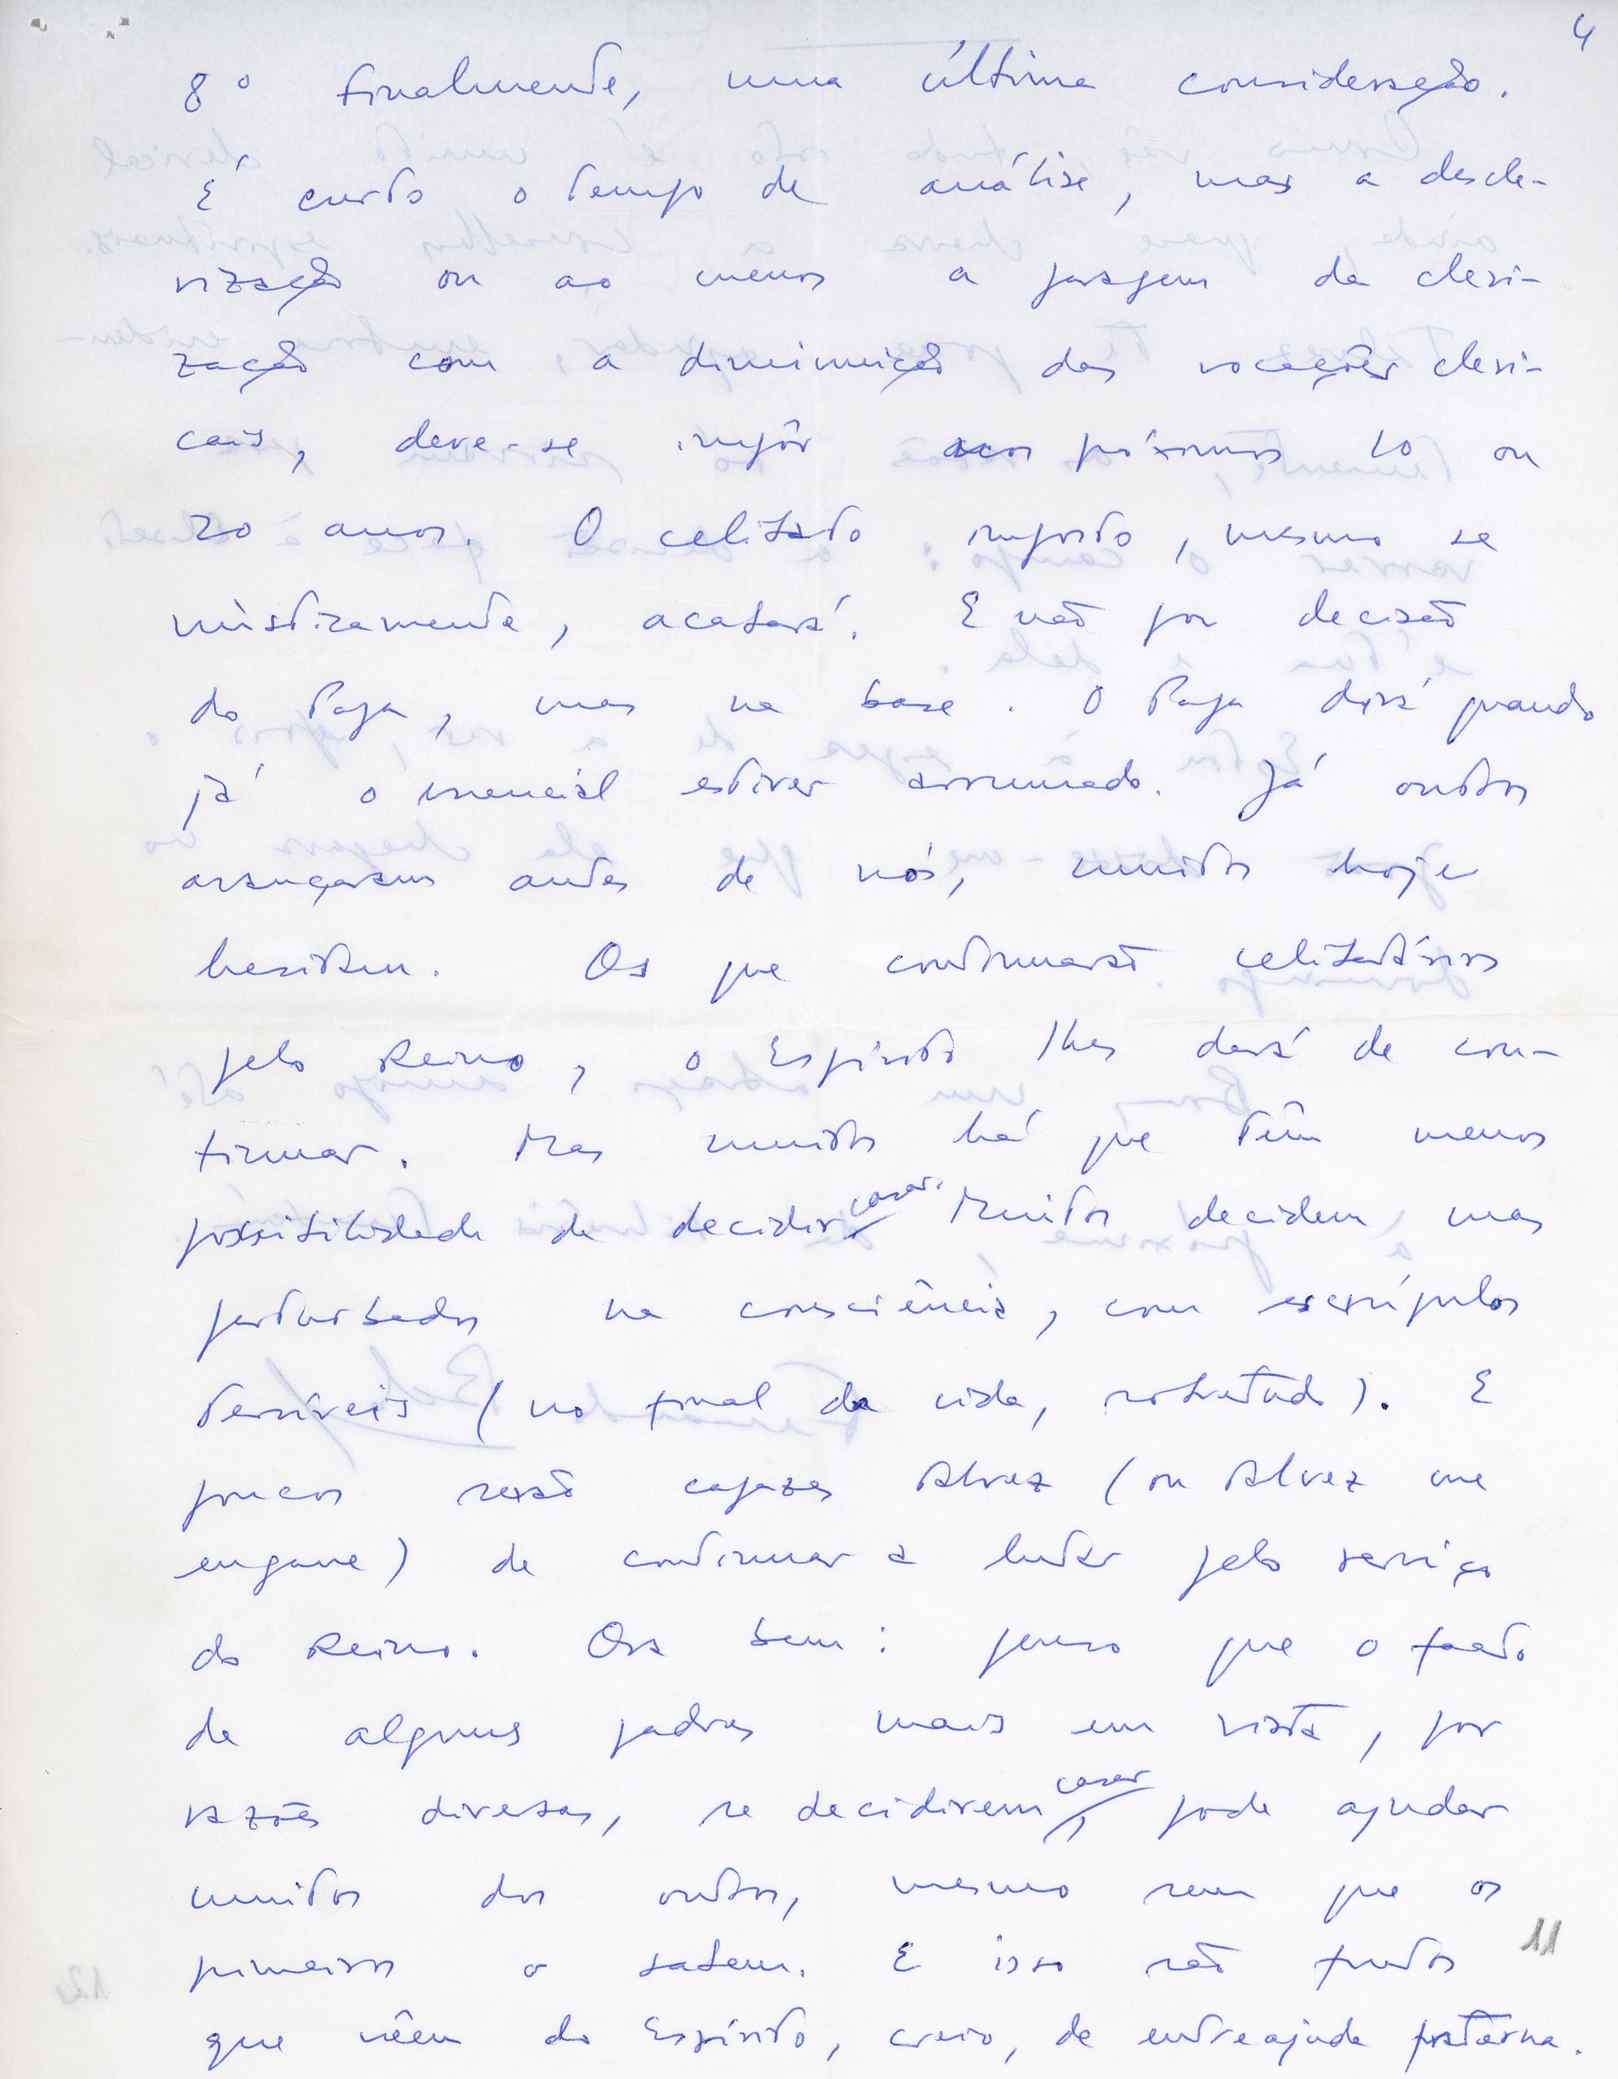 4
8º finalmente, uma última consideração.
É curto o tempo de análise, mas a descle-
rização ou ao menos a paragem da cleri-
zação com a diminuição das vocações cleri-
cais, deve-se impôr nos próximos 10 ou
20 anos. O celibato imposto, mesmo se
misticamente, acabará. E não por decisão
do Papa, mas na base. O Papa dirá quando
já o essencial estiver arrumado. Já outros
avançaram antes de nós, muitos hoje
hesitam. Os que continuarão celibatários
pelo Reino, o Espírito lhes dará de con-
tinuar. Mas muitos há que têm menos
possibilidade de decidir casar. Muitos decidem, mas
perturbados na consciência, com escrúpulos
terríveis (no final da vida, sobretudo). E
poucos serão capazes talvez (ou talvez me
engane) de continuar a lutar pelo serviço
do Reino. Ora bem: penso que o facto
de alguns padres mais em vista, por
razões diversas, se decidirem casar, pode ajudar
muitos dos outros, mesmo sem que os
primeiros o saibam. E isso são frutos
que vêem do Espírito, creio, de entreajuda fraterna.
11